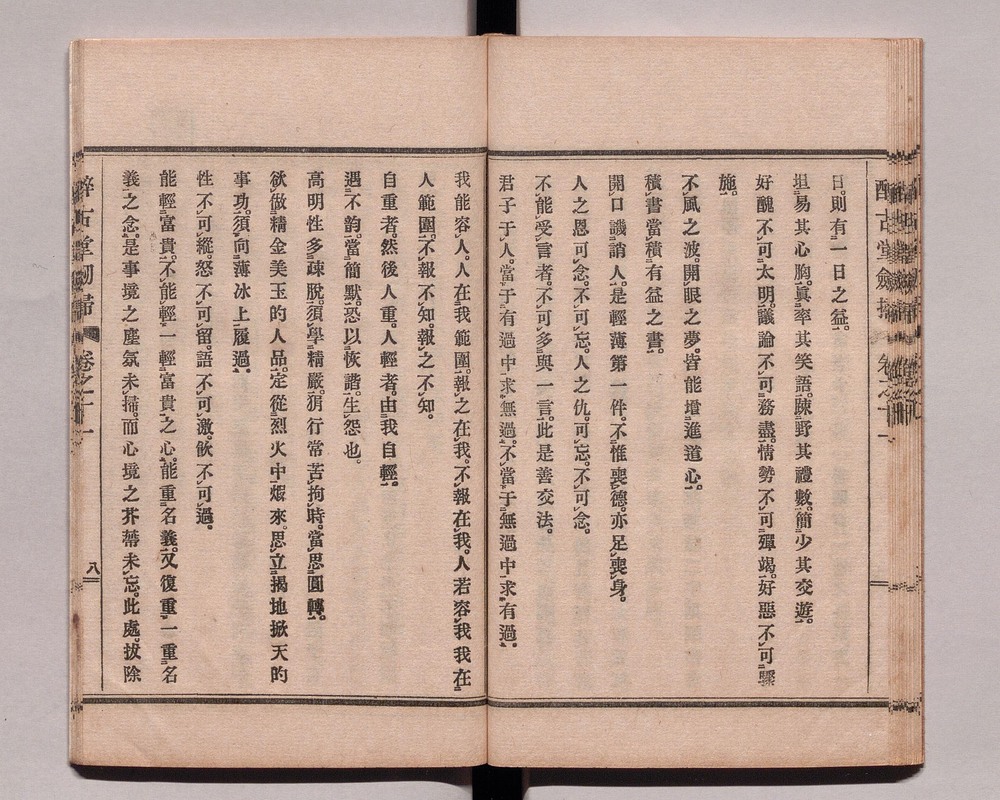 日。則有一日之益。
坦易其心胸。眞率其笑語。踈野其禮數。簡少其交遊。
好醜不可太明。議論不可務盡。情勢不可殫竭。好惡不可驟
施。
不風之波。開眼之夢。皆能增進道心。
積書當積有益之書。
開口譏誚人。是輕薄第一件。不惟喪德。亦足喪身。
人之恩可念。不可忘。人之仇。可忘。不可念。
不能受言者。不可多與一言。此是善交法。
君子于人。當于有過中求無過。不當于無過中求有過。
我能容人。人在我範圍。報之在我。不報在我。人若容我我在
人範圍。不報不知。報之不知。
自重者。然後人重。人輕者。由我自輕。
遇不韵。當簡默。恐以恢諧。生怨也。
高明性多疎脫。須學精嚴。狷行常苦拘時。當思圓轉。
欲做精金美玉的人品。定從烈火中煅來。思立揭地掀天的
事功。須向薄冰上履過。
性不可縱。怒不可留。語不可激。飲不可過。
能輕富貴。不能輕一輕富貴之心。能重名義。又復重一重名
義之念。是事境之塵氛未掃。而心境之芥蔕未忘。此處拔除
醉古堂劒掃 卷之十一
八